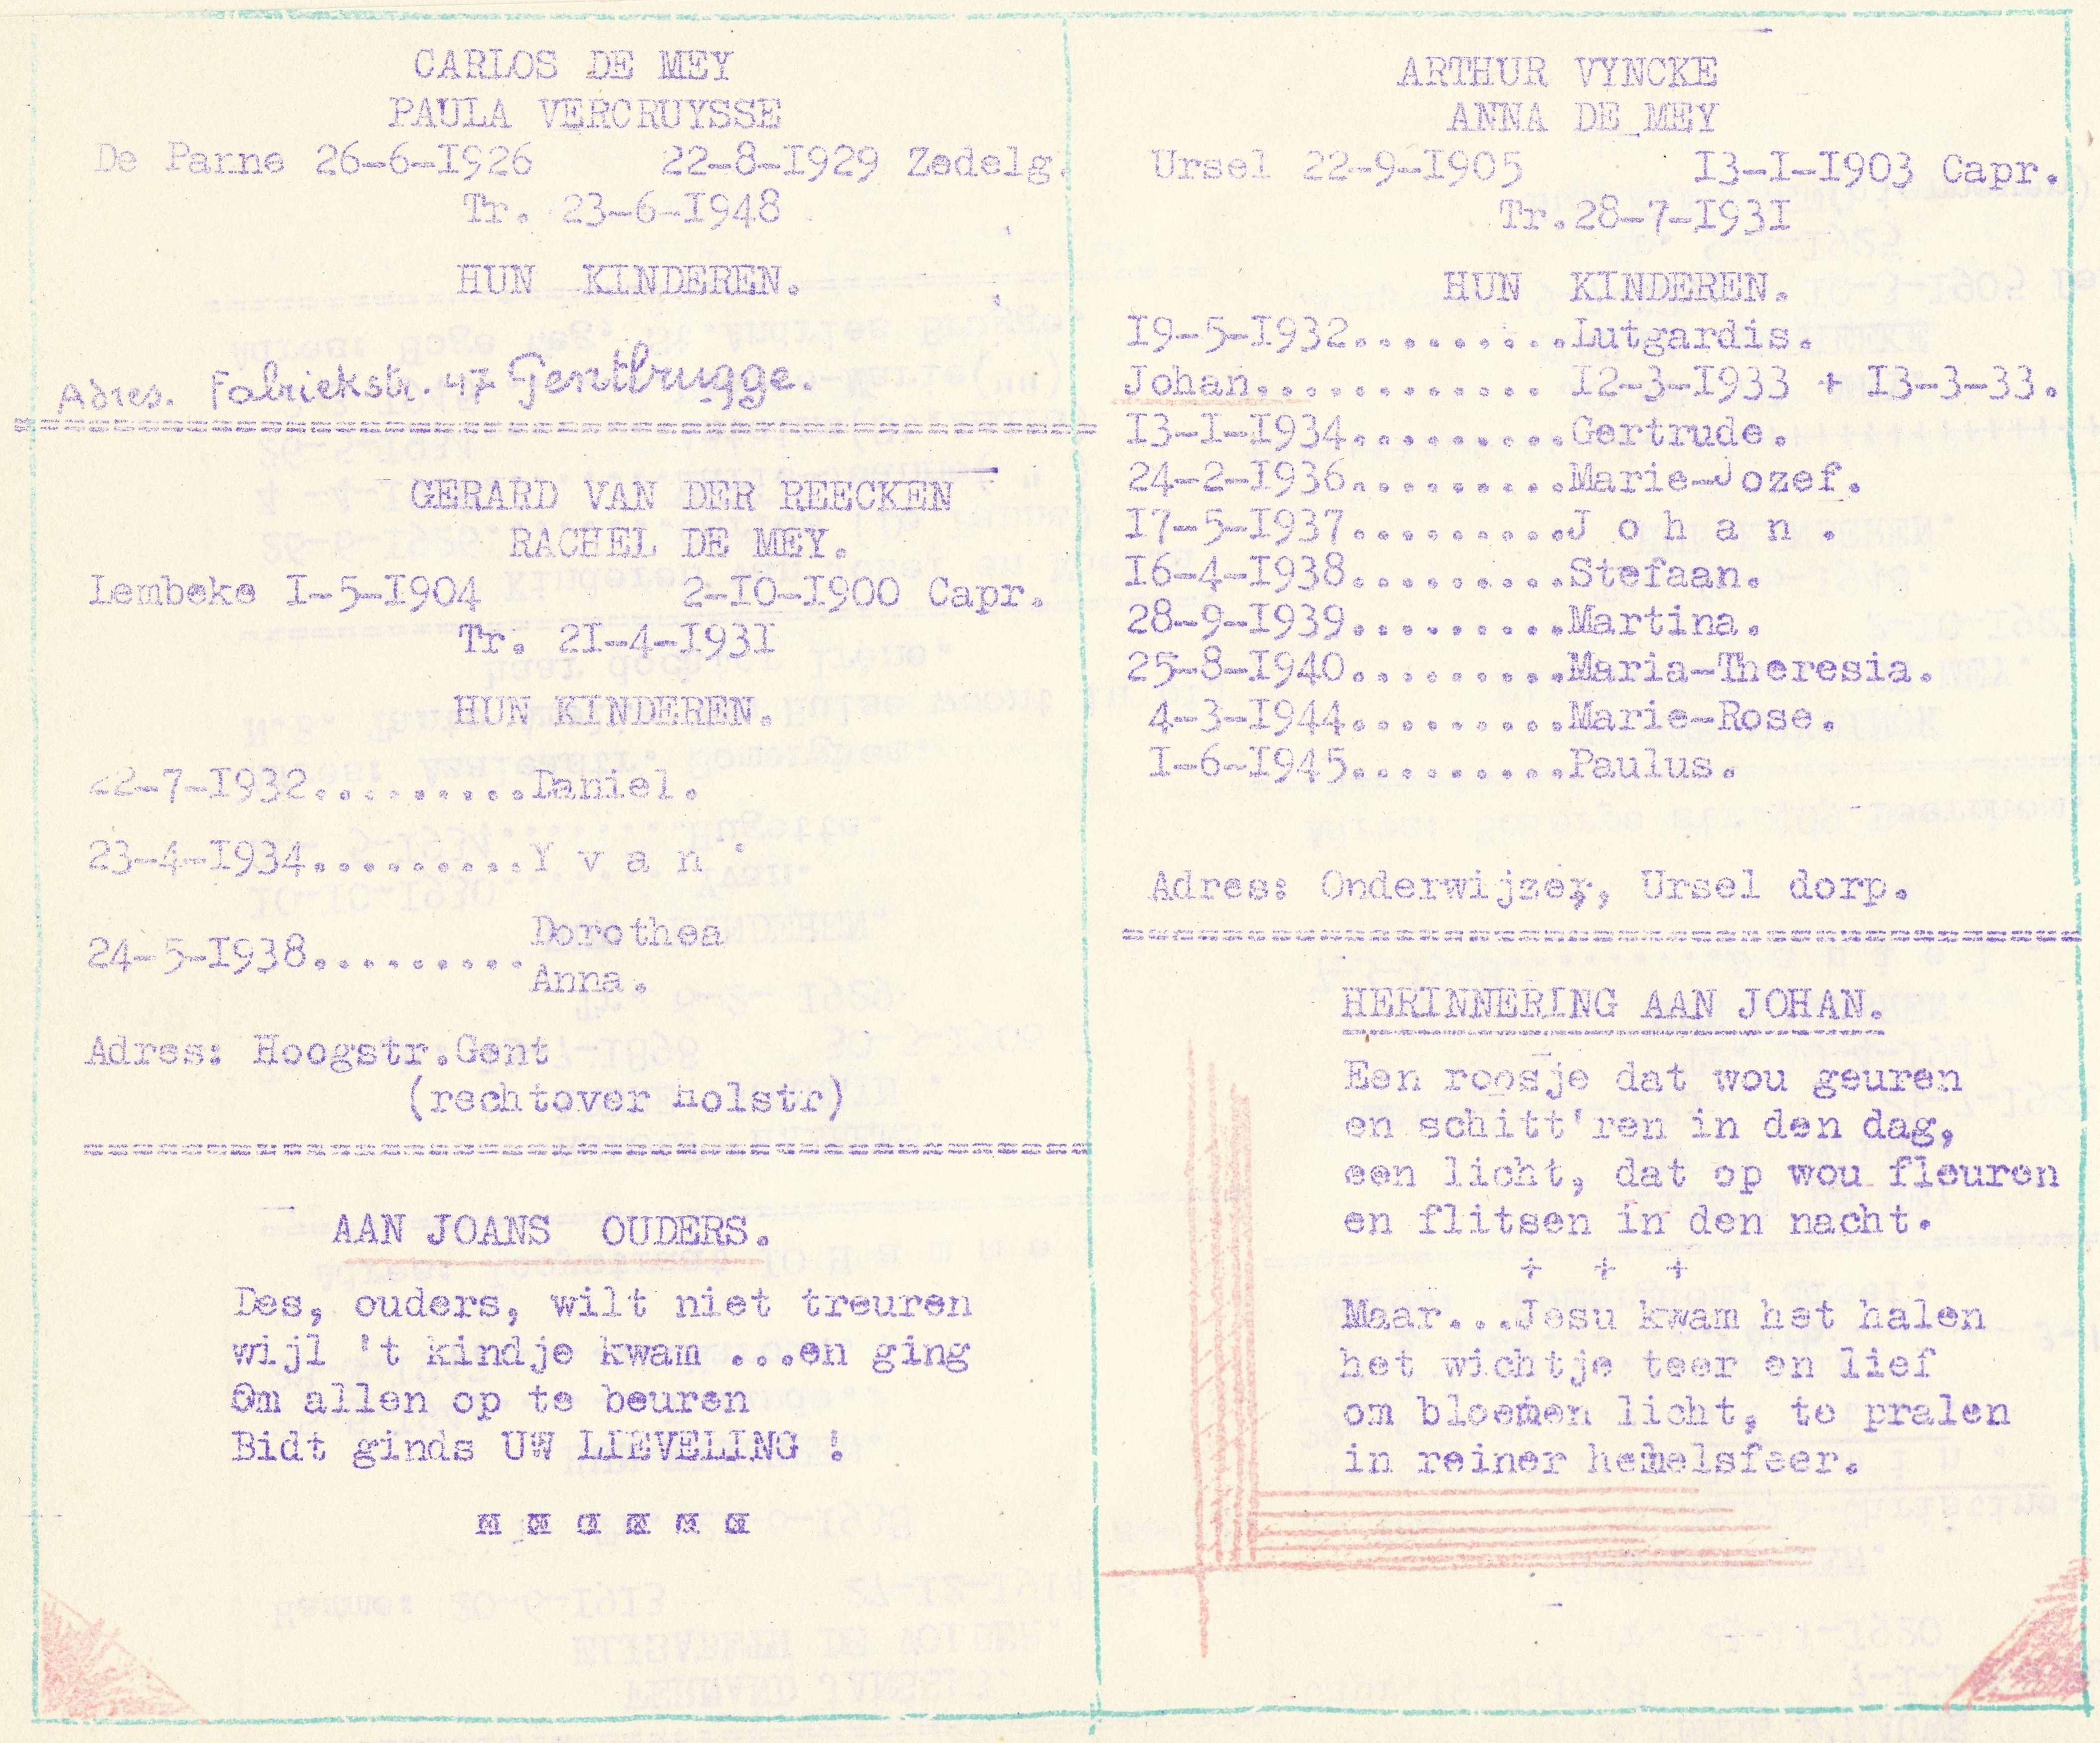 CARLOS DE MEY
PAULA VERCRUYSSE
De Panne 26-6-I926 22-8-I929 Zedelg.
Tr. 23-6-I948
HUN KINDEREN.
Adres. Fabriekstr. 47 Gentbrugge.
GERARD VAN DER REECKEN
RACHEL DE MEY.
Lembeke I-5-I904 2-IO-I900 Capr.
Tr. 2I-4-I93I
HUN KINDEREN.
22-7-I932.........Daniel.
23-4-I934.........Y v a n .
24-5-I938.........Dorothea
Anna.
Adres: Hoogstr.Gent
(rechtover Holstr)
AAN JOANS OUDERS.
Des, ouders, wilt niet treuren
wijl 't kindje kwam ...en ging
Om allen op te beuren
Bidt ginds UW LIEVELING !
ARTHUR VYNCKE
ANNA DE MEY
Ursel 22-9-I905 I3-I-I903 Capr.
Tr.28-7-I93I
HUN KINDEREN.
I9-5-I932.........Lutgardis.
Johan............ I2-3-I933 + I3-3-33.
I3-I-I934.........Gertrude.
24-2-I936.........Marie-Jozef.
I7-5-I937.........J o h a n .
I6-4-I938.........Stefaan.
28-9-I939.........Martina.
25-8-I940.........Maria-Theresia.
4-3-I944.........Marie-Rose.
I-6-I945.........Paulus.
Adres: Onderwijzer, Ursel dorp.
HERINNERING AAN JOHAN.
Een roosje dat wou geuren
en schitt'ren in den dag,
een licht, dat op wou fleuren
en flitsen in den nacht.
+ + +
Maar...Jesu kwam het halen
het wichtje teer en lief
om bloemen licht, te pralen
in reiner hemelsfeer.